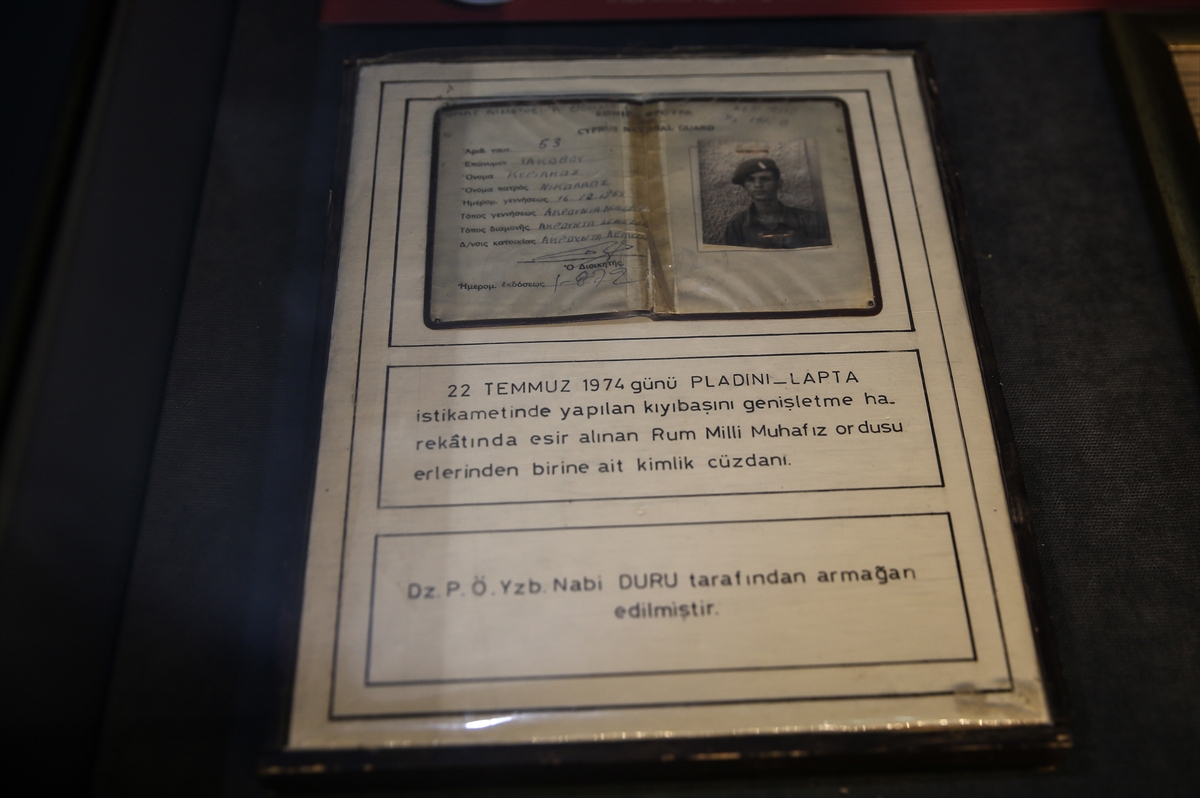 CYPRUS NATIONAL GUARD
Ἀριθ. ταυτ. 53
Ἐπώνυμον ΙΑΚΩΒΟΥ
Ὄνομα ΚΥΡΙΑΚΟΣ
Ὄνομα πατρός ΝΙΚΟΛΑΟΣ
Ἡμερομ. γεννήσεως 16.12.
Τόπος γεννήσεως ΑΚΡΟΥΝΤΑ
Τόπος διαμονῆς ΑΚΡΟΥΝΤΑ
Δ/νσις κατοικίας ΑΚΡΟΥΝΤΑ
Ὁ Διοικητής
Ἡμερομ. ἐκδόσεως
22 TEMMUZ 1974 günü PLADINI_LAPTA
istikametinde yapılan kıyıbaşını genişletme ha_
rekâtında esir alınan Rum Milli Muhafız ordusu
erlerinden birine ait kimlik cüzdanı.
Dz. P. Ö. Yzb. Nabi DURU tarafından armağan
edilmiştir.